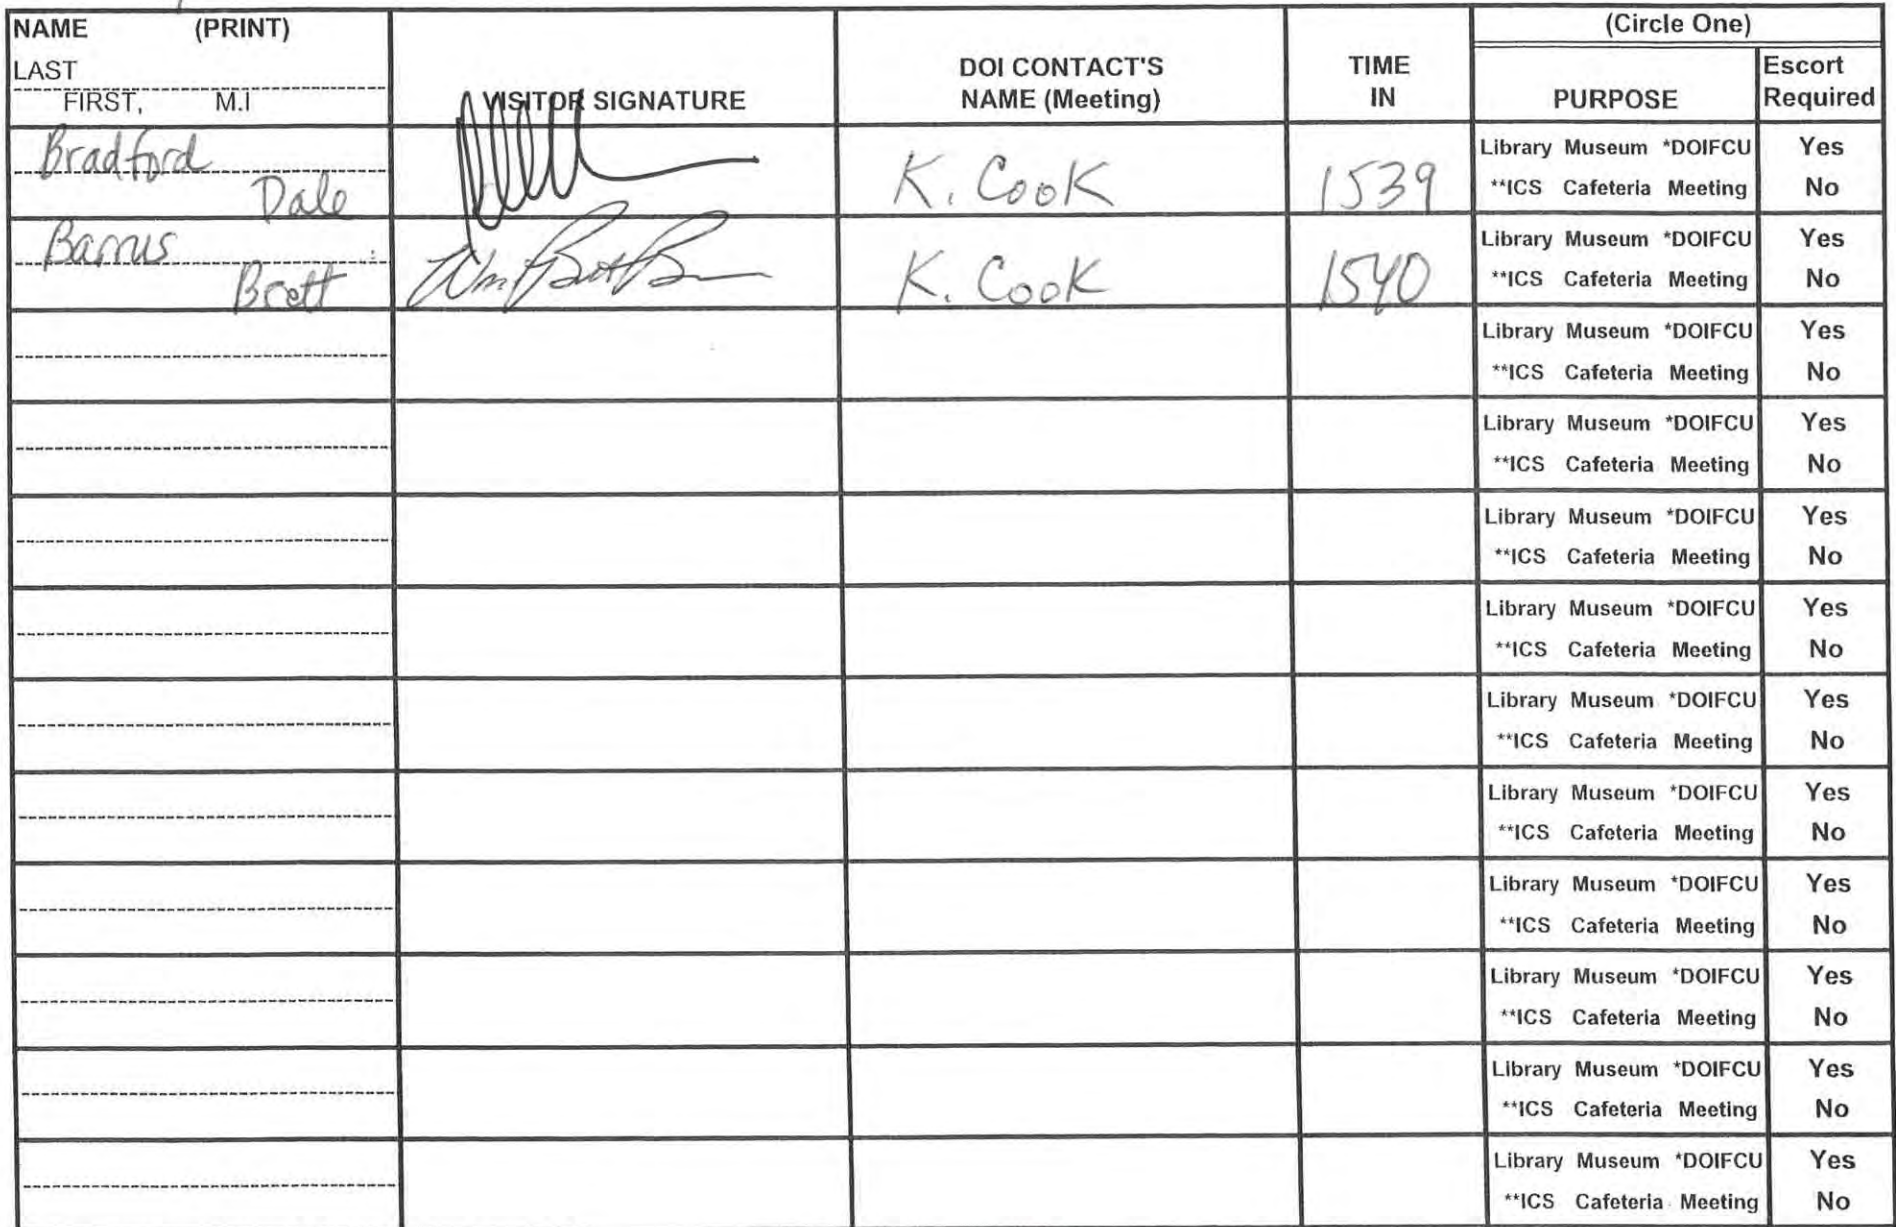 NAME (PRINT)
LAST
FIRST, M.I
VISITOR SIGNATURE
DOI CONTACT'S
NAME (Meeting)
TIME
IN
(Circle One)
PURPOSE
Escort
Required
Bradford
Dale
K. Cook
1539
Library Museum *DOIFCU Yes
**ICS Cafeteria Meeting No
Barrus
Brett
K. Cook
1540
Library Museum *DOIFCU Yes
**ICS Cafeteria Meeting No
Library Museum *DOIFCU Yes
**ICS Cafeteria Meeting No
Library Museum *DOIFCU Yes
**ICS Cafeteria Meeting No
Library Museum *DOIFCU Yes
**ICS Cafeteria Meeting No
Library Museum *DOIFCU Yes
**ICS Cafeteria Meeting No
Library Museum *DOIFCU Yes
**ICS Cafeteria Meeting No
Library Museum *DOIFCU Yes
**ICS Cafeteria Meeting No
Library Museum *DOIFCU Yes
**ICS Cafeteria Meeting No
Library Museum *DOIFCU Yes
**ICS Cafeteria Meeting No
Library Museum *DOIFCU Yes
**ICS Cafeteria Meeting No
Library Museum *DOIFCU Yes
**ICS Cafeteria Meeting No